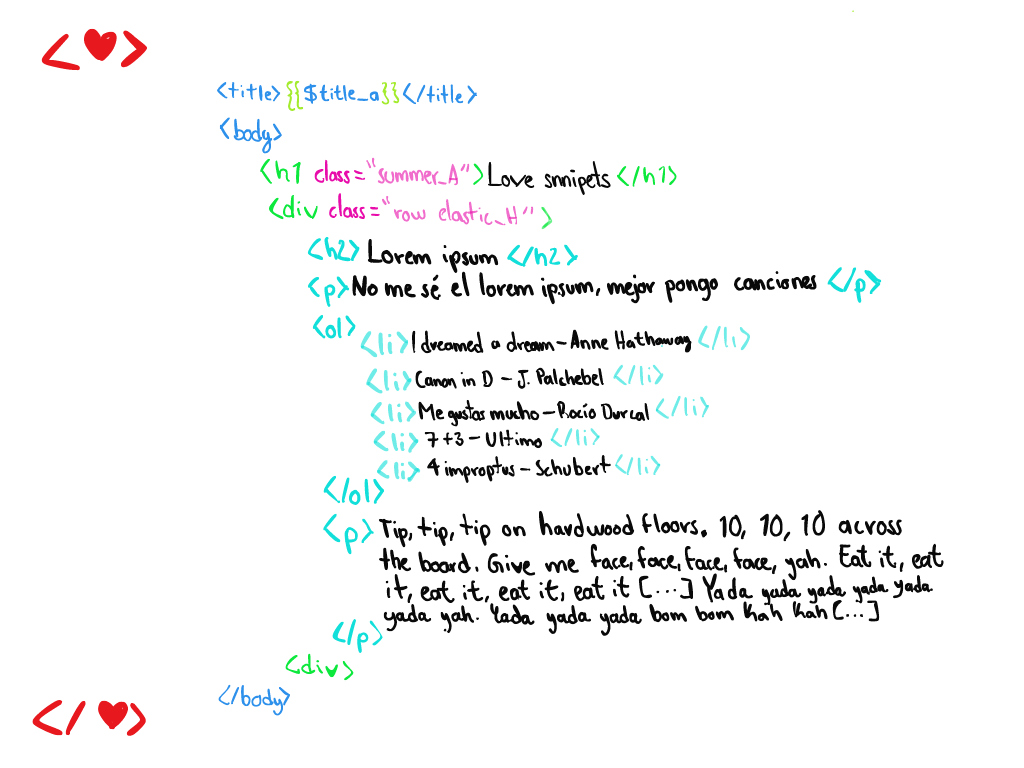 <♥>
<title>{{$title_a}}</title>
<body>
<h1 class="summer_A">Love snnipets</h1>
<div class="row elastic_H">
<h2>Lorem ipsum</h2>
<p>No me sé el lorem ipsum, mejor pongo canciones</p>
<ol>
<li>I dreamed a dream-Anne Hathaway</li>
<li>Canon in D - J. Palchebel</li>
<li>Me gustas mucho-Rocío Durcal</li>
<li>7+3-Ultimo</li>
<li>4 improptus-Schubert</li>
</ol>
<p>Tip, tip, tip on hardwood floors. 10, 10, 10 across
the board. Give me face, face, face, face, yah. Eat it, eat
it, eat it, eat it, eat it [...] Yada yada yada yada yada
yada yah. Yada yada yada bom bom kah kah [...]
</p>
<div>
</body>
</♥>